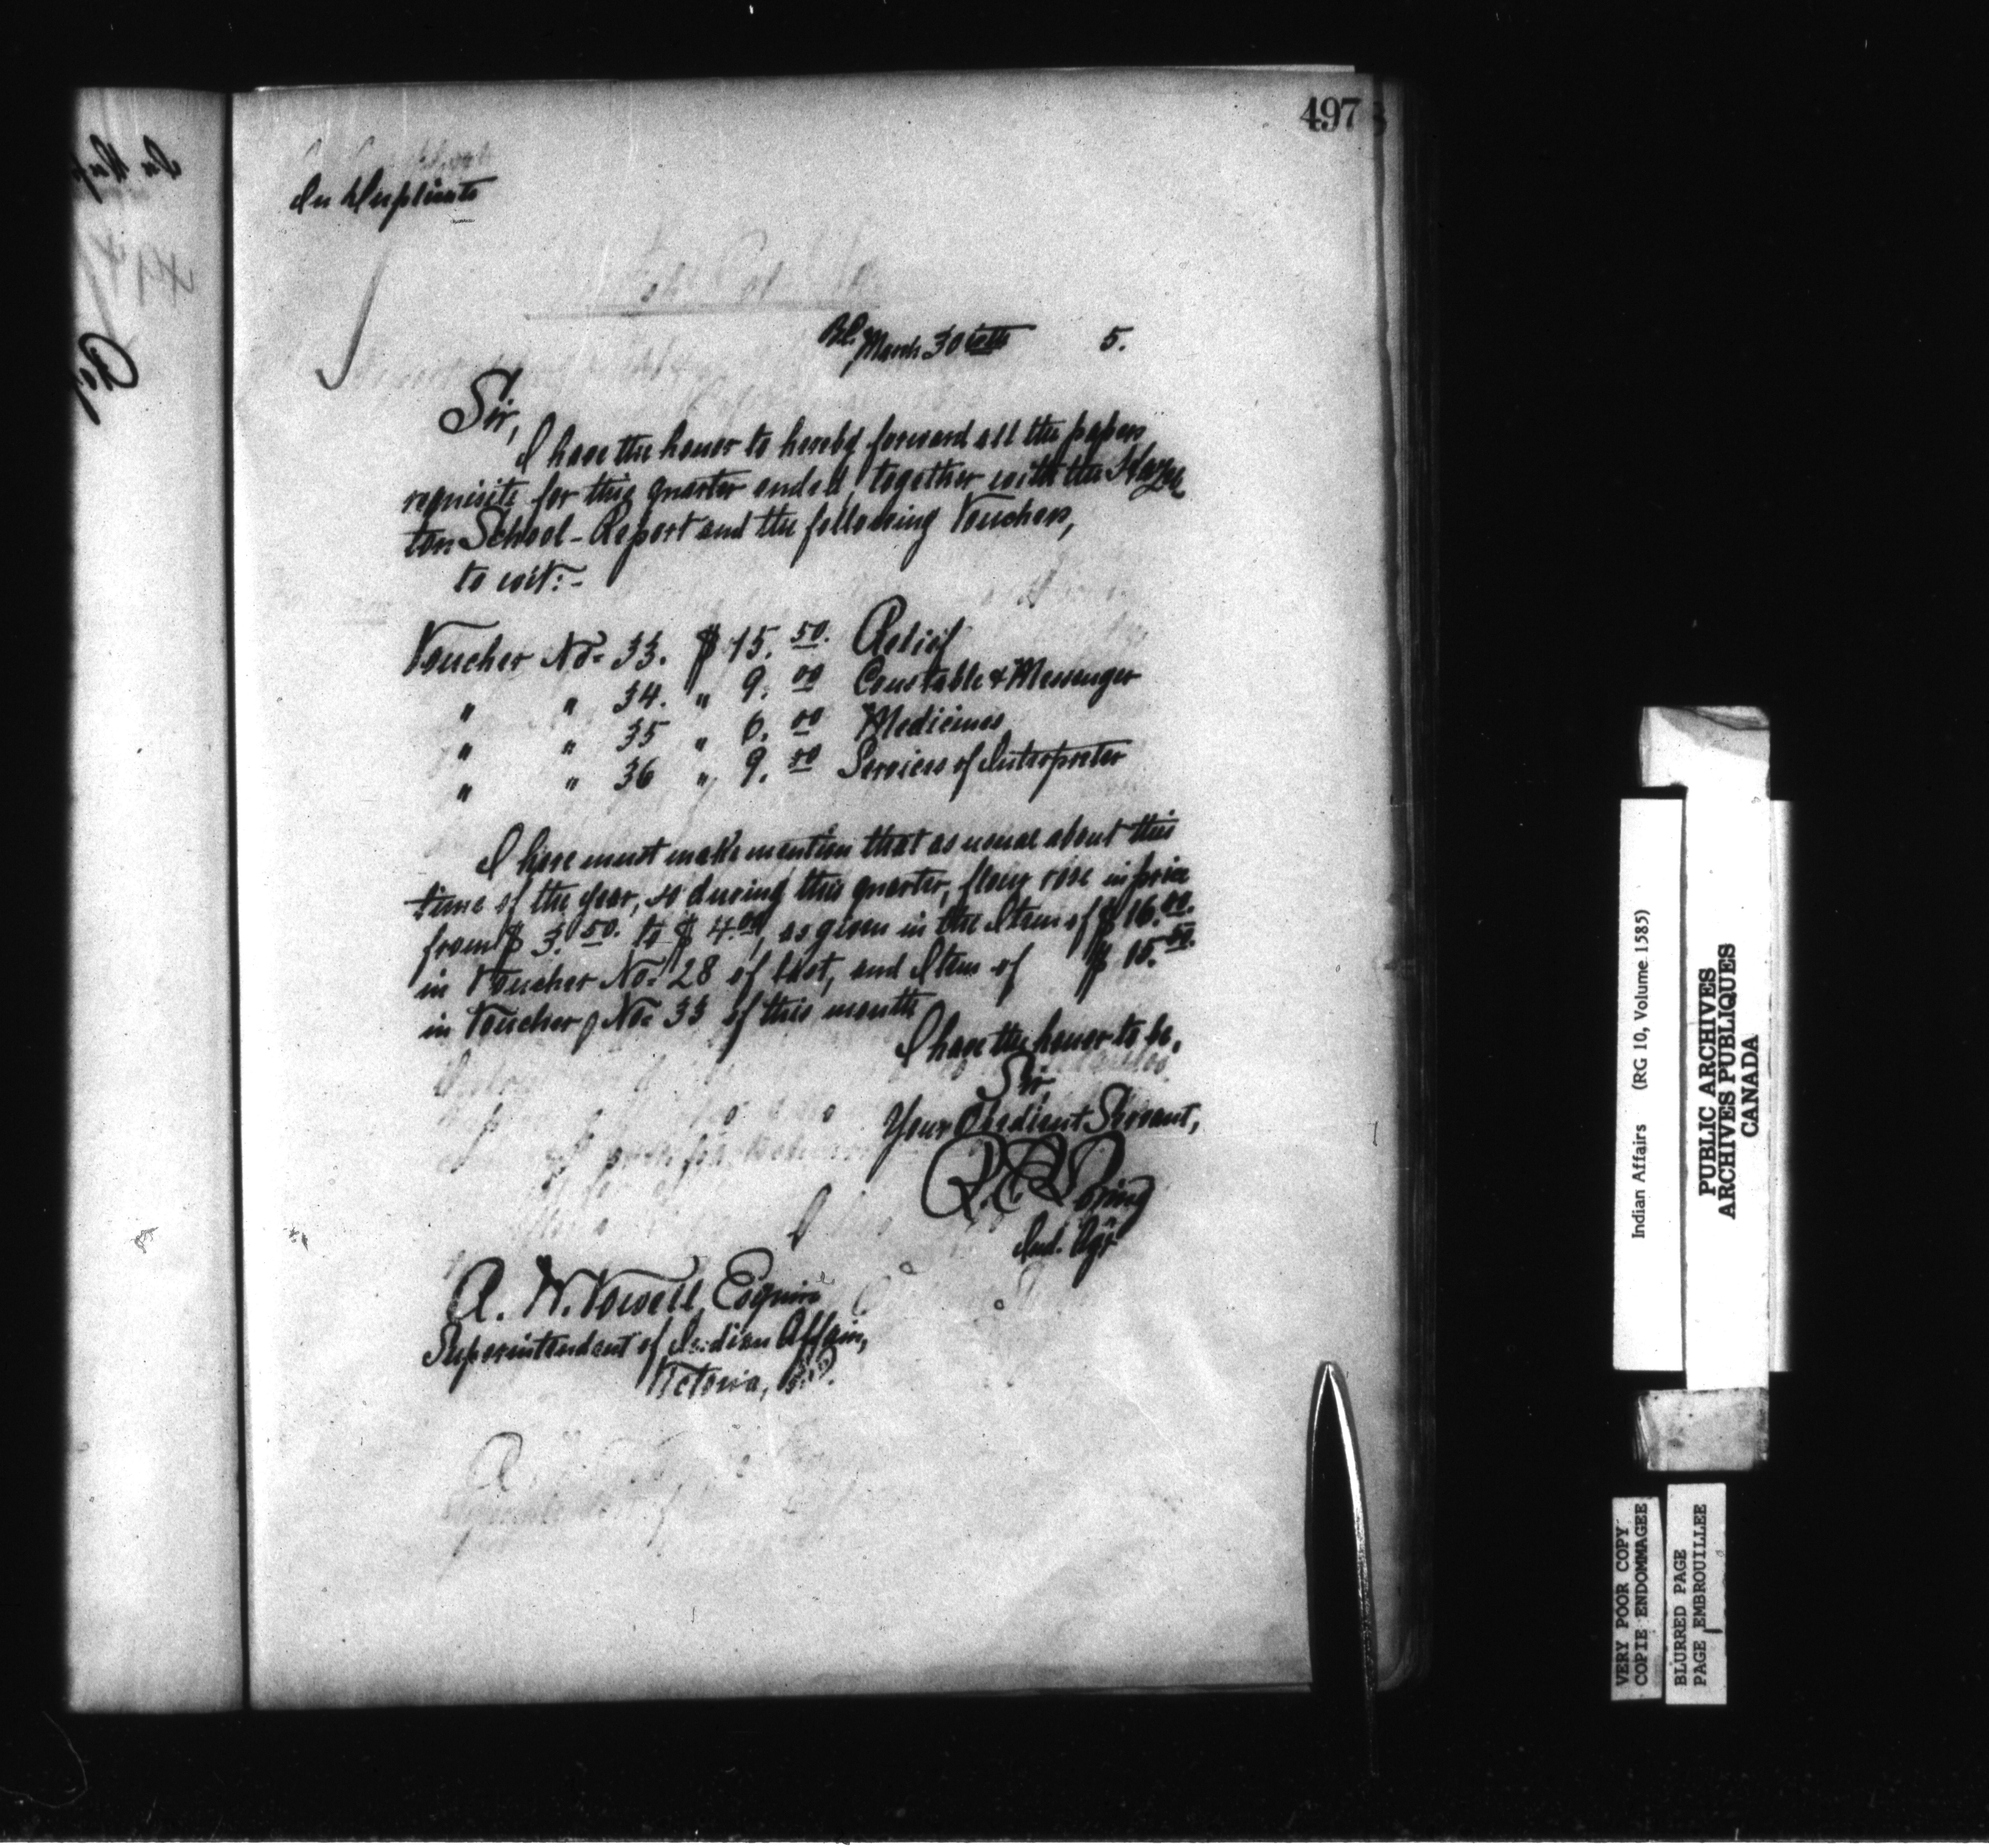 497
In Duplicate
BC. March 30th 5.
Sir,
I have the honor to hereby forward all the papers
requisite for this quarter ended, together with the Hazel
ton School-Report and the following Vouchers,
to wit:-
Voucher No. 33. $ 15. 50. Relief
" " 34. " 9. 00 Constable & Messenger
" " 35 " 6. 00 Medicines
" " 36 " 9. 50 Services of Interpreter
I here must make mention that as usual about this
time of the year, so during this quarter, flour rose in price
from $ 3. 50. to $ 4. 00, as given in the Item of $ 16. 00.
in Voucher No. 28 of last, and Item of $ 15. 50.
in Voucher, No. 33 of this month
I have the honor to be,
Sir,
Your Obedient Servant,
R. E. Loring
Ind. Agt
A. W. Vowell, Esquire
Superintendent of Indian Affairs,
Victoria, B.C.
Indian Affairs (RG 10, Volume 1585)
PUBLIC ARCHIVES
ARCHIVES PUBLIQUES
CANADA
VERY POOR COPY
COPIE ENDOMMAGEE
BLURRED PAGE
PAGE EMBROUILLEE